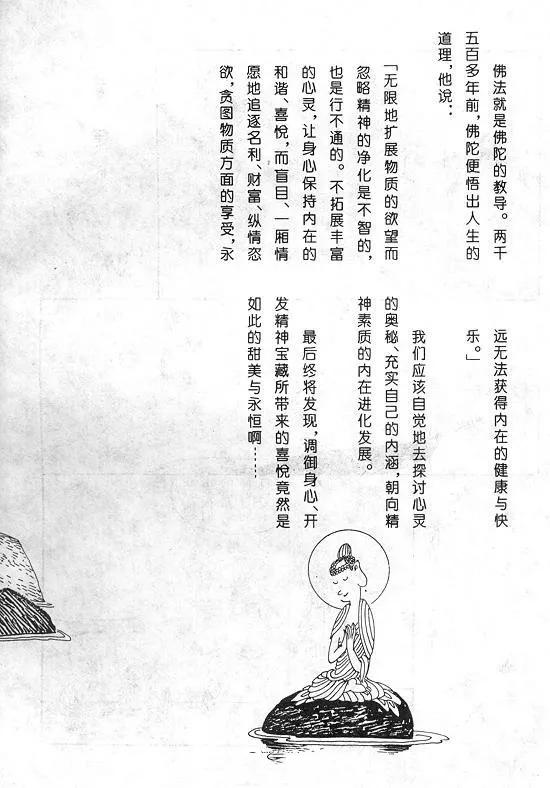 佛法就是佛陀的教导。两千
五百多年前，佛陀便悟出人生的
道理，他说：
「无限地扩展物质的欲望而
忽略精神的净化是不智的，
也是行不通的。不拓展丰富
的心灵，让身心保持内在的
和谐、喜悦，而盲目、一厢情
愿地追逐名利、财富、纵情恣
欲，贪图物质方面的享受，永
远无法获得内在的健康与快
乐。」
我们应该自觉地去探讨心灵
的奥秘、充实自己的内涵，朝向精
神素质的内在进化发展。
最后终将发现，调御身心、开
发精神宝藏所带来的喜悦竟然是
如此的甜美与永恒啊……